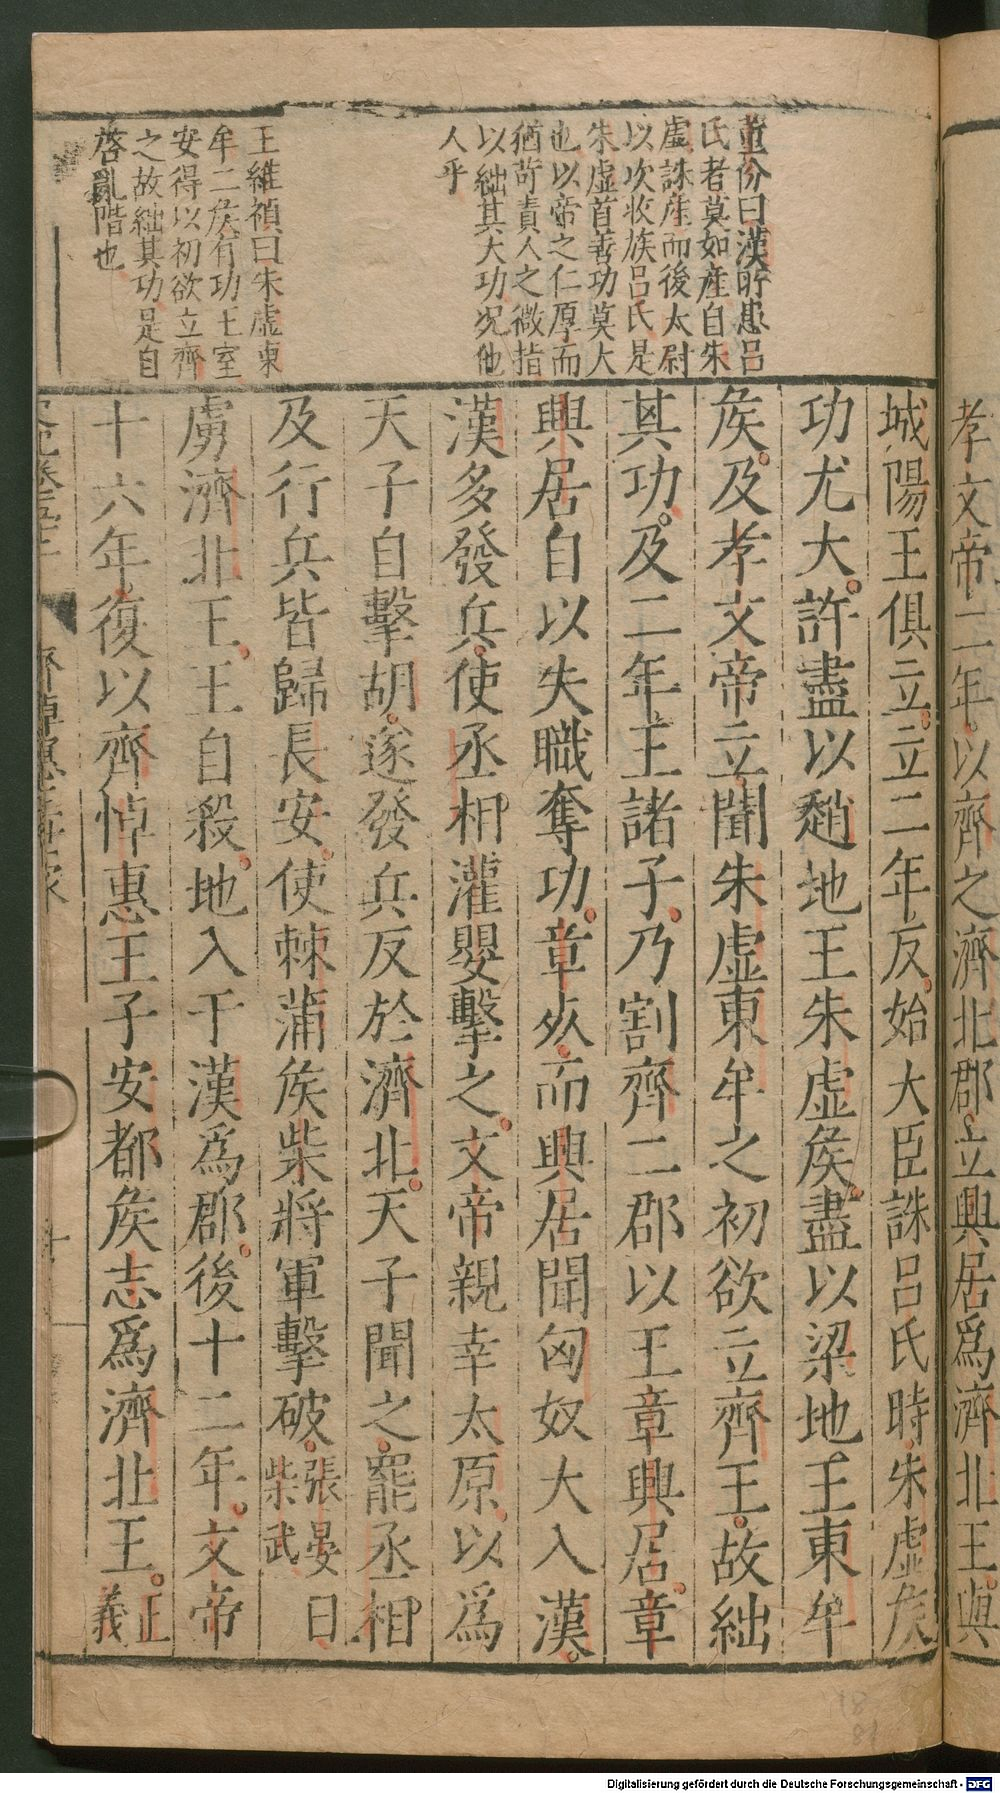 孝文帝二年以齊之濟北郡立興居爲濟北王與
城陽王俱立立二年反始大臣誅呂氏時朱虛矦
功尤大許盡以趙地王朱虛矦盡以梁地王東牟
矦及孝文帝立聞朱虛東牟之初欲立齊王故絀
其功及二年王諸子乃割齊二郡以王章興居章
興居自以失職奪功章死而興居聞匈奴大入漢
漢多發兵使丞相灌嬰擊之文帝親幸太原以爲
天子自擊胡遂發兵反於濟北天子聞之罷丞相
及行兵皆歸長安使棘蒲矦柴將軍擊破張晏曰柴武
虜濟北王王自殺地入于漢爲郡後十二年文帝
十六年復以齊悼惠王子安都矦志爲濟北王正義
董份曰漢所患呂
氏者莫如產自朱
虛誅產而後太尉
以次收族呂氏是
朱虛首善功莫大
也以帝之仁厚而
猶苛責人之微指
以絀其大功况他
人乎
王維禎曰朱虛東
牟二矦有功王室
安得以初欲立齊
之故絀其功是自
啓亂階也
齊悼惠王世家
十
Digitalisierung gefördert durch die Deutsche Forschungsgemeinschaft - DFG